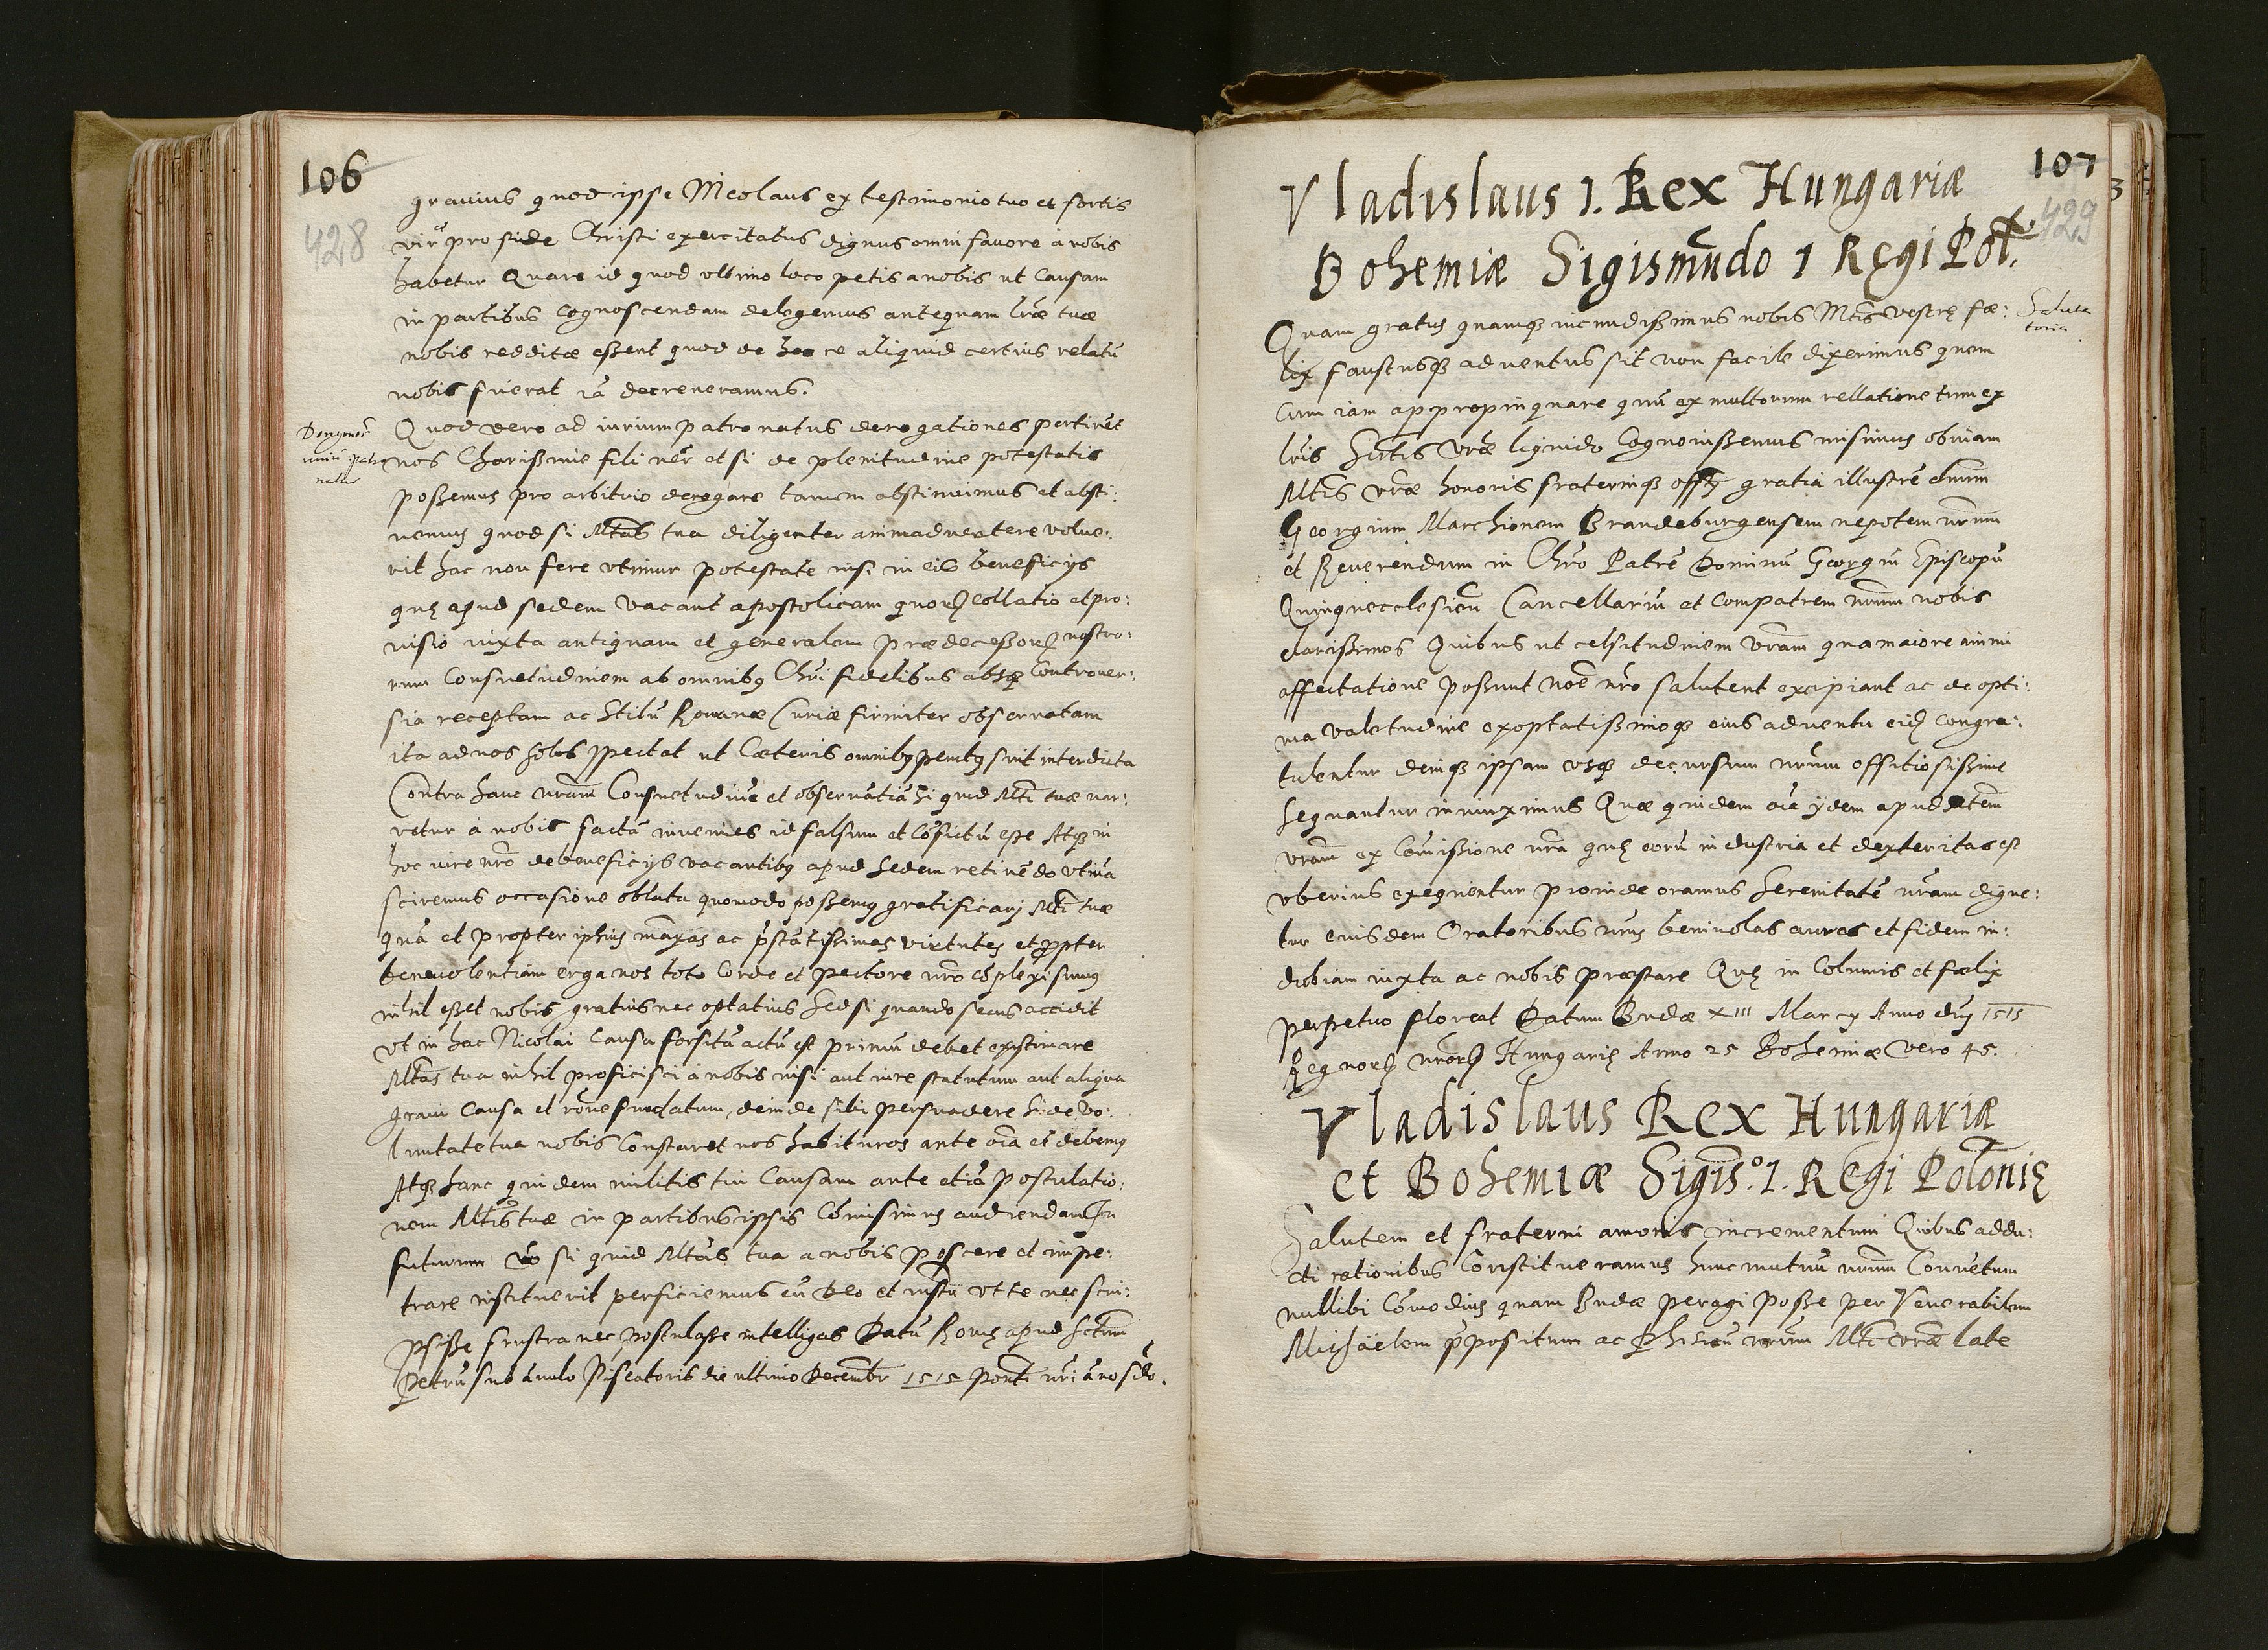 106
428
grauius quod ipse Nicolaus ex testimonio tuo et fortis
vir pro fide Christi exercitatus dignus omni fauore à nobis
habetur Quare id quod ultimo loco petis a nobis ut Causam
in partibus Cognoscendam delegemus antequam lr̃æ tuæ
nobis redditæ eßent quod de hac re aliquid certius relatũ
nobis fuerat iã decreueramus.
Quod vero ad iurium patronatus derogationes pertinet
nos Charißime fili nr̃ et si de plenitudine potestatis
poßemus pro arbitrio derogare tamen abstinuimus et absti:
nemus quod si Mtas tua diligenter animaduertere volue:
rit hac non fere vtimur potestate nisi in eis beneficijs
quę apud sedem vacant apostolicam quorum Collatio et pro:
uisio iuxta antiquam et generalem prædeceßorum nostro:
rum Consuetudinem ab omnibus Chri fidelibus absq Controuer:
sia receptam ac Stilũ Romanæ Curiæ firmiter obseruatam
ita ad nos solos spectat ut Cæteris omnibus penitus sint interdicta
Contra hanc nram Consuetudinẽ et obseruatiã si quid Mti tuæ nar:
retur à nobis factũ inuenies id falsum et Cõfictũ eße Atq in
hoc iure nro de beneficijs vacantibus apud Sedem retinẽdo vtinã
sciremus occasione oblata quomodo poßemus gratificarj Mti tuæ
quã et propter ipsius maxas ac pr̃stãtissimas virtutes et propter
beneuolentiam erga nos toto Corde et pectore nro cõplexi sumus
nihil eßet nobis gratius nec optatius Sed si quando secus accidit
vt in hac Nicolai Causa forsitã actũ est primũ debet existimare
Mtas tua nihil proficisci à nobis nisi aut iure statutum aut aliqua
graui Causa et rõne fundatum, deinde sibi persuadere si de vo:
luntate tua nobis Constaret nos habituros ante oĩa et debemus
Atq hanc quidem militis tui Causam ante etiã postulatio:
nem Mtis tuæ in partibus ipsis Cõmisimus audiendam In
futurum vo si quid Mtas tua a nobis poscere et impe:
trare instituerit perficiemus cũ Deo et iustũ vt te nec scri:
psiße frustra nec postulaße intelligas Datũ Romę apud Sctum
Petrũ sub ãnulo Piscatoris die ultimo Decembr 1515 Pont nri ãno sdo.
107
429
Vladislaus 1. Rex Hungariæ
Bohemiæ Sigismũndo 1 Regi Pol.
Saluta
toria
Quam gratus quamq iucundißimus nobis Mtis vestrę fæ:
lix faustusq aduentus sit non facile dixerimus quem
Cum iam appropinquare quũ ex multorum rellatione tum ex
lris Sertis vræ liquido Cognouißemus misimus obuiam
Mtis vræ honoris fraterniq offitij gratia illustrẽ dnum
Georgium Marchionem Brandeburgensem nepotem nrum
et Reuerendum in Chro Patrẽ Dominũ Georgiũ Episcopũ
Quinqueecclesien Cancellariũ et Compatrem nrum nobis
clarißimos Quibus ut celsitudinem vram qua maiore animi
affectatione poßunt noĩe nro salutent excipiant ac de opti:
ma valetudine exoptatißimoq eius aduentu eid Congra:
tulentur deniq ipsam vsq decursum nrum offitiosißime
sequantur iniunximus Quæ quidem oĩa ijdem apud Mtem
vram ex Com̃ißione nra quę eorũ industria et dexteritas est
vberius exequentur proinde oramus Serenitatẽ vram digne:
tur eiusdem Oratoribus nris beniuolas aures et fidem in:
dubiam iuxta ac nobis præstare Quę in Columis et fælix
perpetuo floreat Datum Budæ XIII Marcij Anno dnj 1515
Regnorum nrorum Hungarię Anno 25 Bohemiæ vero 45.
Vladislaus Rex Hungariæ
et Bohemiæ Sigis.º 1. Regi Polonię
Salutem et fraterni amoris incrementum Quibus addu:
cti rationibus Constitueramus hunc mutuũ nrum Conuẽtum
nullibi Cõmodius quam Budæ peragi poße per Venerabilem
Michäelem præpositum ac Phisicũ nrum Mti vræ late